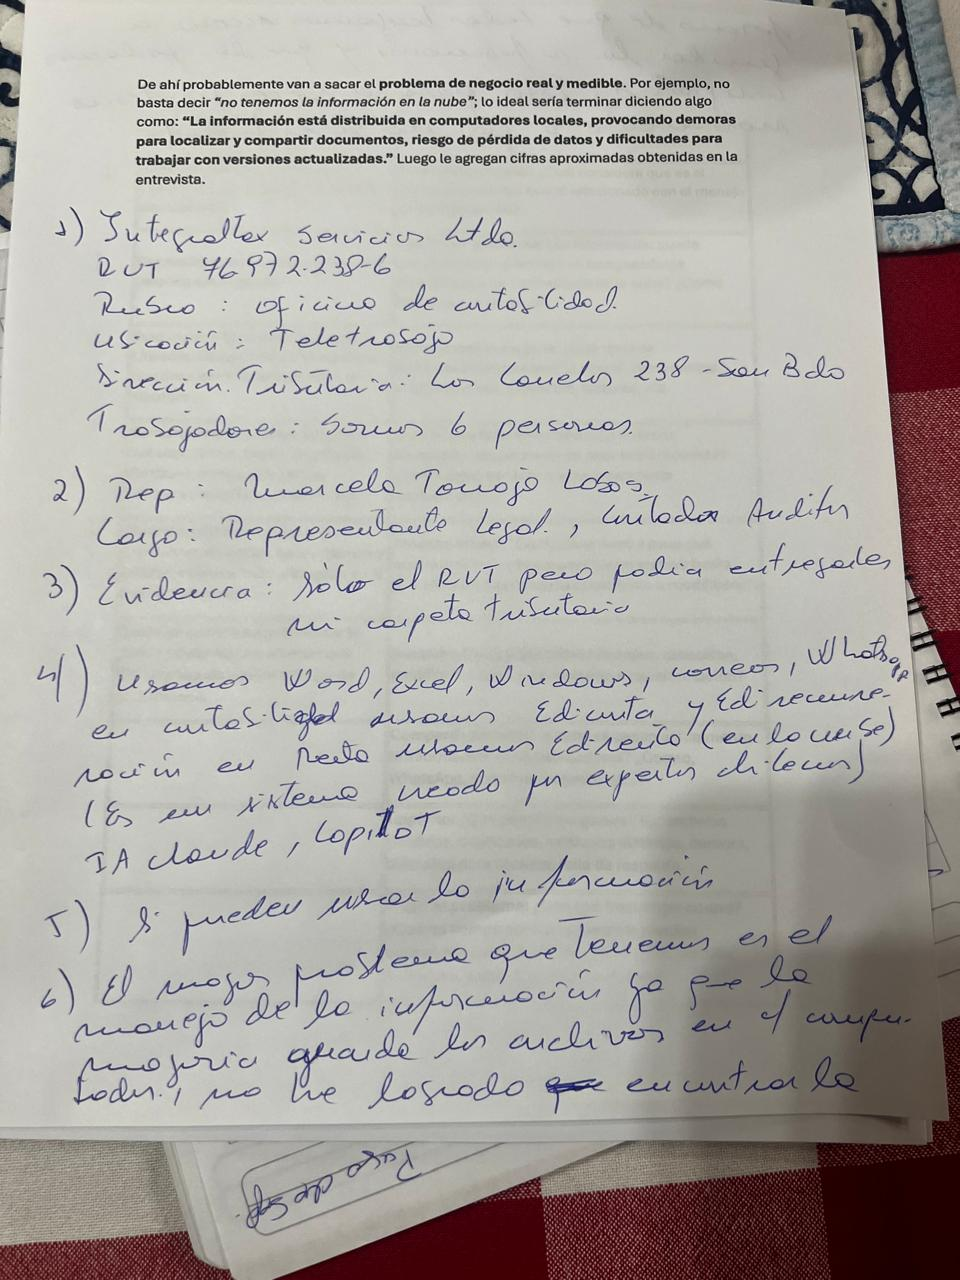 De ahí probablemente van a sacar el problema de negocio real y medible. Por ejemplo, no
basta decir “no tenemos la información en la nube”; lo ideal sería terminar diciendo algo
como: “La información está distribuida en computadores locales, provocando demoras
para localizar y compartir documentos, riesgo de pérdida de datos y dificultades para
trabajar con versiones actualizadas.” Luego le agregan cifras aproximadas obtenidas en la
entrevista.
1) Servicios Ltda.
RUT 76.972.238-6
Rubro : oficina de contabilidad.
Ubicación : Teletrabajo
Dirección Tributaria: Los 238 - San Bdo
Trabajadores : Somos 6 personas.
2) Rep : Marcela Lobos
Cargo: Representante Legal, Contador Auditor
3) Evidencia : Sólo el RUT pero podia entregarles
mi carpeta tributaria
4) Usamos Word, Excel, Windows, correos, Whatsapp
en contabilidad usamos Ediconta y Ediremune-
ración en Renta usamos Edirenta (en la nube)
(Es un sistema creado por expertos chilenos)
IA Claude, Copilot
5) Si pueden usar la información
6) El mayor problema que tenemos es el
manejo de la información ya que la
mayoria guarda los archivos en el compu-
tador, no he logrado encontrar la